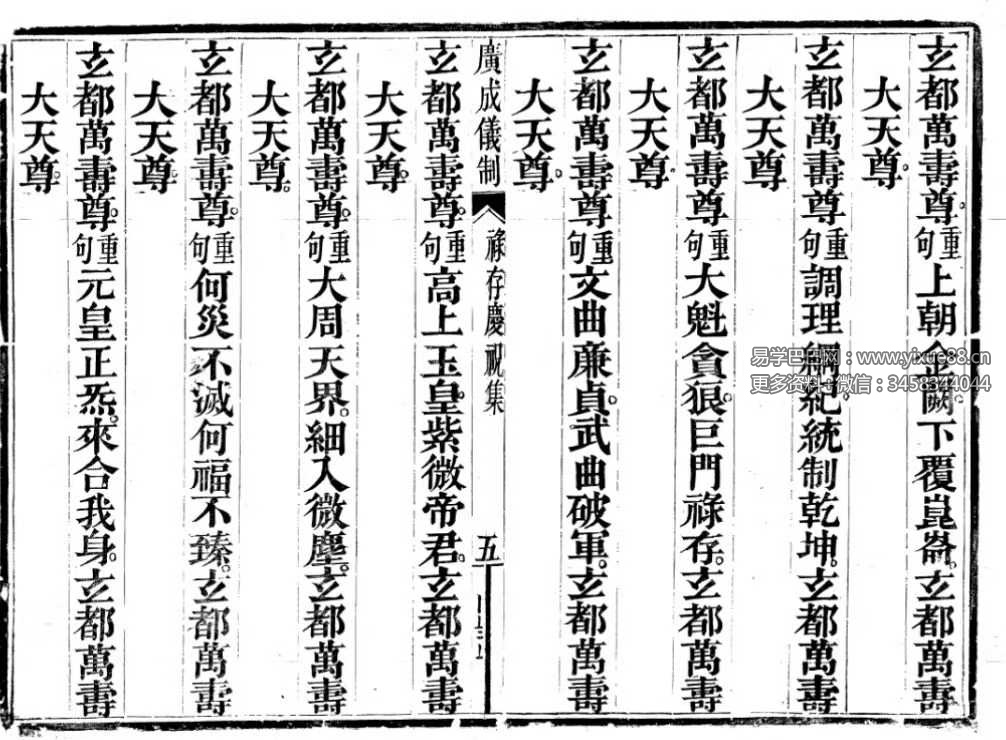 玄都萬壽尊。重句上朝金闕。下覆崑崙。玄都萬壽
大天尊。
玄都萬壽尊重句調理綱紀。統制乾坤。玄都萬壽
大天尊
玄都萬壽尊重句大魁貪狼。巨門祿存。玄都萬壽
大天尊。
玄都萬壽尊。重句文曲廉貞。武曲破軍。玄都萬壽
大天尊。
廣成儀制
祿存慶祝集
五
玄都萬壽尊。重句高上玉皇。紫微帝君。玄都萬壽
大天尊。
玄都萬壽尊。重句大周天界。細入微塵。玄都萬壽
大天尊。
玄都萬壽尊。重句何災不滅何福不臻。玄都萬壽
大天尊。
玄都萬壽尊。重句元皇正炁。來合我身。玄都萬壽
大天尊。
易学巴巴网：www.yixue88.cn
更多资料+微信：3458344044